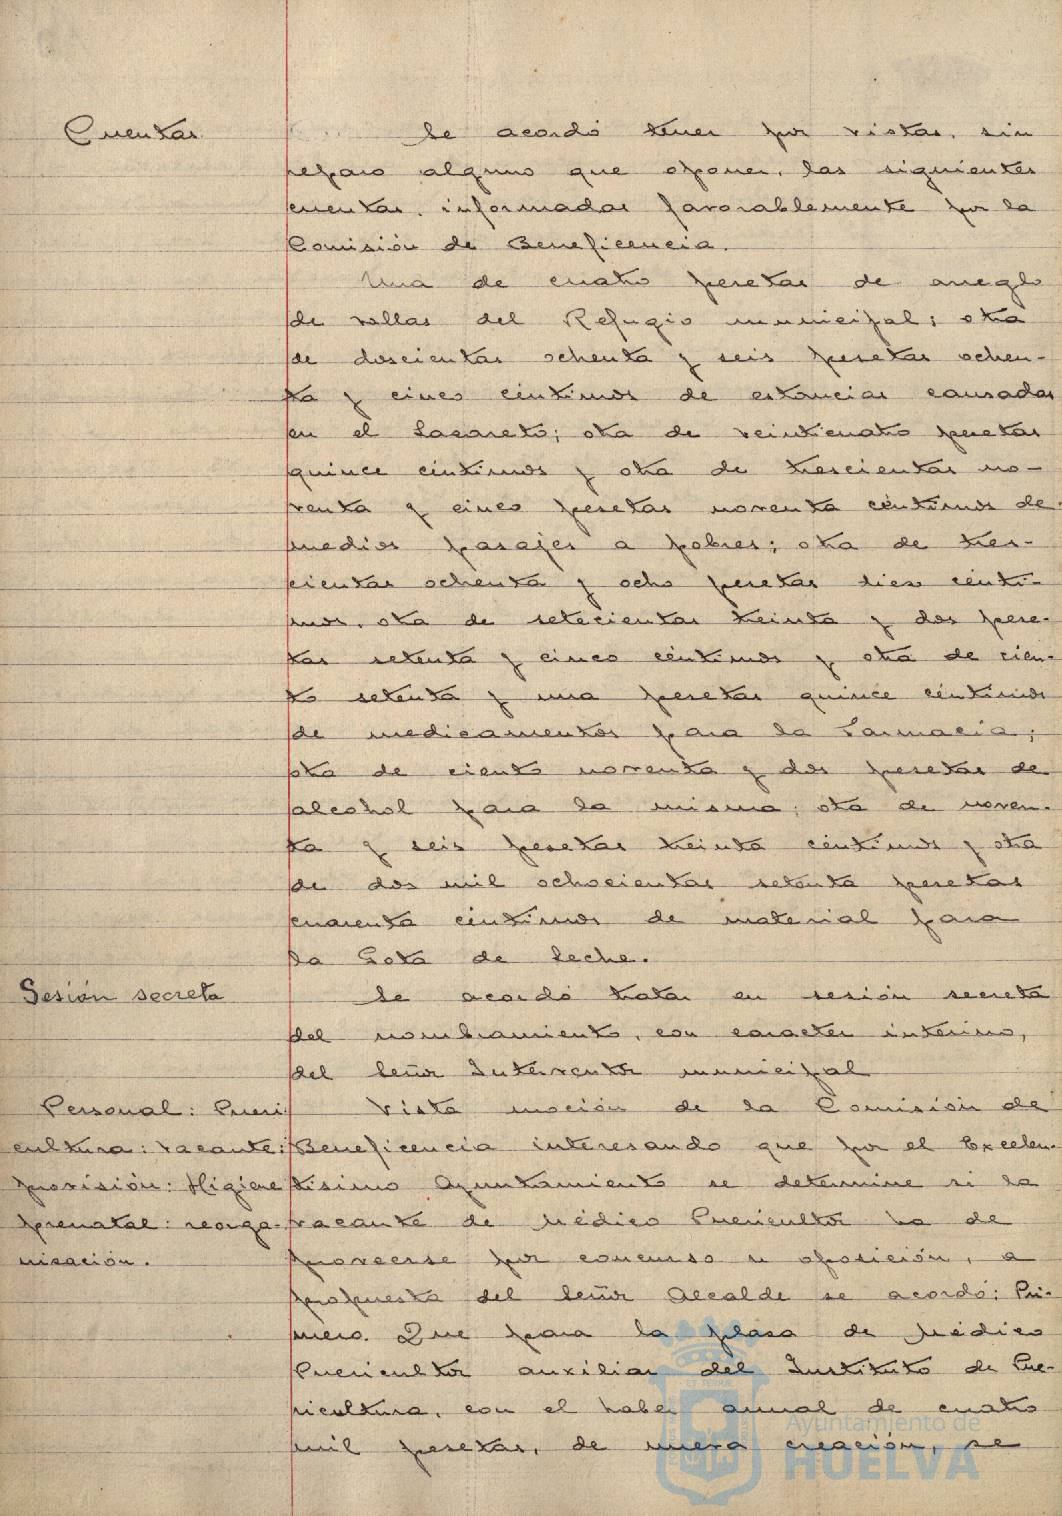 Cuentas
Se acordó tener por vistas, sin
reparo alguno que oponer, las siguientes
cuentas, informadas favorablemente por la
Comisión de Beneficencia.
Una de cuatro pesetas de arreglo
de sillas del Refugio municipal; otra
de doscientas ochenta y seis pesetas ochen-
ta y cinco céntimos de estancias causadas
en el Lazareto; otra de veinticuatro pesetas
quince céntimos y otra de trescientas no-
venta y cinco pesetas noventa céntimos de
medios pasajes a pobres; otra de tres-
cientas ochenta y ocho pesetas diez cénti-
mos, otra de setecientas treinta y dos pese-
tas setenta y cinco céntimos y otra de cien-
to setenta y una pesetas quince céntimos
de medicamentos para la Farmacia;
otra de ciento noventa y dos pesetas de
alcohol para la misma; otra de noven-
ta y seis pesetas treinta céntimos y otra
de dos mil ochocientas setenta pesetas
cuarenta céntimos de material para
la Gota de Leche.
Sesión secreta
Se acordó tratar en sesión secreta
del nombramiento, con caracter interino,
del Señor Interventor municipal
Personal: Pueri
cultura: vacante:
provisión: Higiene
prenatal: reorga-
nización.
Vista moción de la Comisión de
Beneficencia interesando que por el Excelen-
tísimo Ayuntamiento se determine si la
vacante de Médico Puericultor ha de
proveerse por concurso u oposición, a
propuesta del Señor Alcalde se acordó: Pri-
mero. Que para la plaza de Médico
Puericultor auxiliar del Instituto de Pue-
ricultura, con el haber anual de cuatro
mil pesetas, de nueva creación, se
Ayuntamiento de
HUELVA